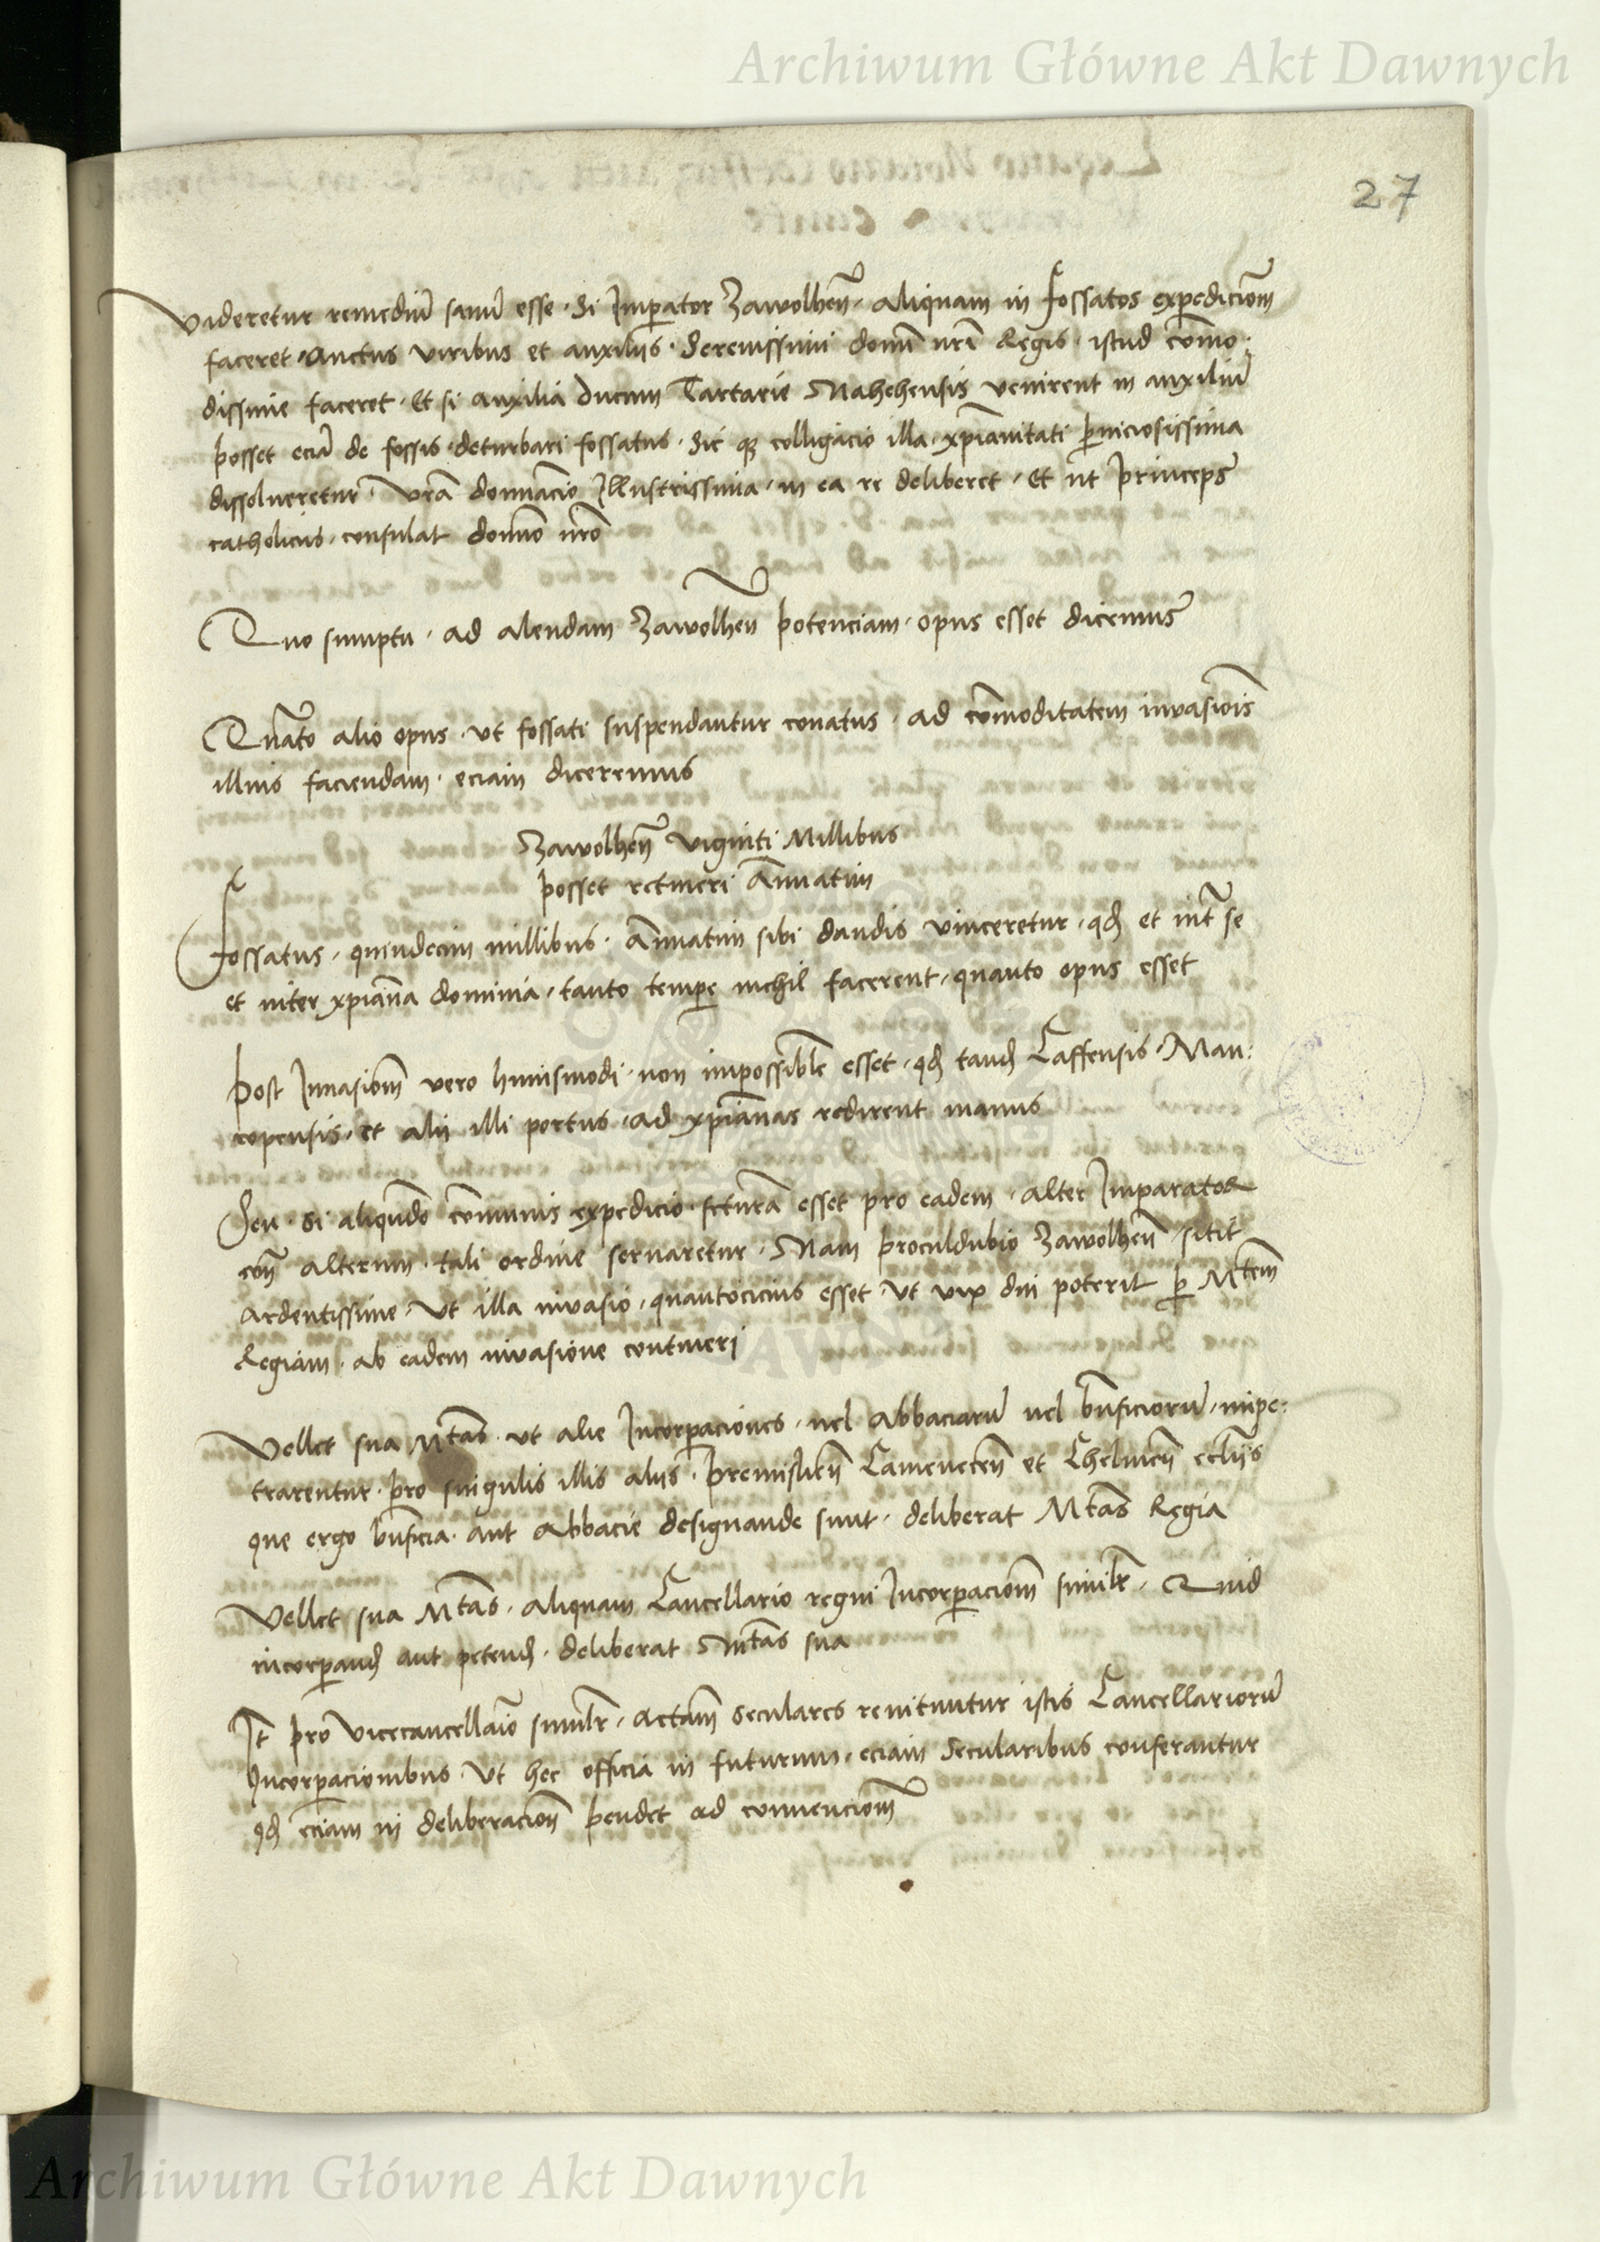 Archiwum Główne Akt Dawnych
27
Videretur remediũ sanũ esse · Si Imperator Zawolheñ · aliquam in fossatos expedicioñm
faceret · Auctus viribus et auxiliis · Serenissimi domĩ nrĩ Regis · istud cõmo:
dissime faceret · Et si auxilia ducum Tartarie Nahehensis venirent in auxiliũ
posset eciã de fossis · deturbari fossatus · Sic qz colligacio illa · xpianitati perniciosissima
dissolueretur · Vrã dominacio Illustrissima · in ea re deliberet · Et ut princeps
catholicus · consulat domino nrõ
Quo sumptu · ad alendam Zawolheñ potenciam · opus esset dicemus
Quãto alio opus · ut fossati suspendantur conatus · ad cõmoditatem invasiõis
illius faciendam · eciam diceremus
Zawolheñ viginti Millibus
posset retineri Annatim
Fossatus · quindecim millibus · Annatim sibi dandis vinceretur · qd et inter se
et inter xpiãna dominia · tanto tempore nichil facerent · quanto opus esset
Post Invasionem vero huiusmodi · non impossibile esset · qd tand Caffensis · Man:
copensis · et alii illi portus · ad xpianas redirent manus
Seu · Si aliqñdo cõmunis expedicio · futura esset pro eadem · alter Imparator
coñ alterum · tali ordine servaretur · Nam proculdubio Zawolheñ sitit
Ardentissime · Ut illa invasio · quantocicius esset · Ut vix diu poterit per Mtem
Regiam · ab eadem invasione contineri
Vellet sua Mtas · ut alie Incorporaciones · vel Abbaciarũ vel bñficiorũ · impe:
trarentur · pro singulis illis aliis · Premislieñ Cameneceñ et Chelmeñ ecliis
que ergo bñficia · aut Abbacie designande sunt · deliberat Mtas Regia
Vellet sua Mtas · aliquam Cancellario regni Incorporacioñm similr · Quid
incorporand aut petend · deliberat Mtas sua
It pro vicecancellaio similr · Seculares renituntur istis Cancellariorũ
Incorporacionibus · Ut hec officia in futurum · eciam Secularibus conferantur
qd eciam in deliberacioñ pendet ad convencioñm
Archiwum Główne Akt Dawnych